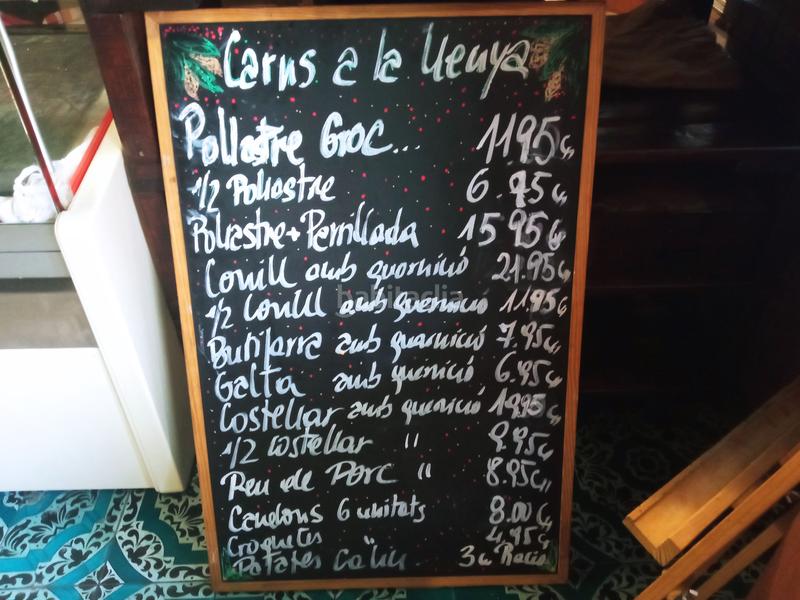 Carns a la llenya
Pollastre Groc... 11 95 €
1/2 Pollastre 6.95 €
Pollastre + Parrillada 15 95 €
Conill amb guarnició 21.95 €
1/2 Conill amb guarnició 11.95 €
Butifarra amb guarnició 7.95 €
Galta amb guarnició 6.95 €
Costellar amb guarnició 18,95 €
1/2 Costellar " 9.95 €
Peu de Porc " 8.95 €
Canelons 6 unitats 8.00 €
Croquetes 4.95 €
Patates 3 € Ració
habitaclia